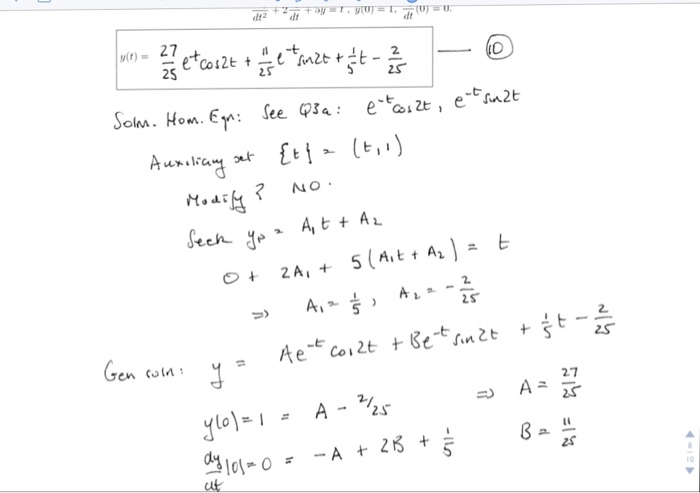 d²y/dt² + 2 dy/dt + 5y = t, y(0) = 1, dy/dt (0) = 0.
y(t) = 27/25 e^-t cos2t + 11/25 e^-t sin2t + 1/5 t - 2/25 — (10)
Soln. Hom. Eqn: See Q3a: e^-t cos2t, e^-t sin2t
Auxiliary set {t} = (t,1)
Modify? NO.
Seek yp = A₁t + A₂
0 + 2A₁ + 5(A₁t + A₂) = t
⇒ A₁ = 1/5, A₂ = -2/25
Gen soln: y = Ae^-t cos2t + Be^-t sin2t + 1/5 t - 2/25
y(0)=1 = A - 2/25 ⇒ A = 27/25
dy/dt (0)=0 = -A + 2B + 1/5 B = 11/25
8
10